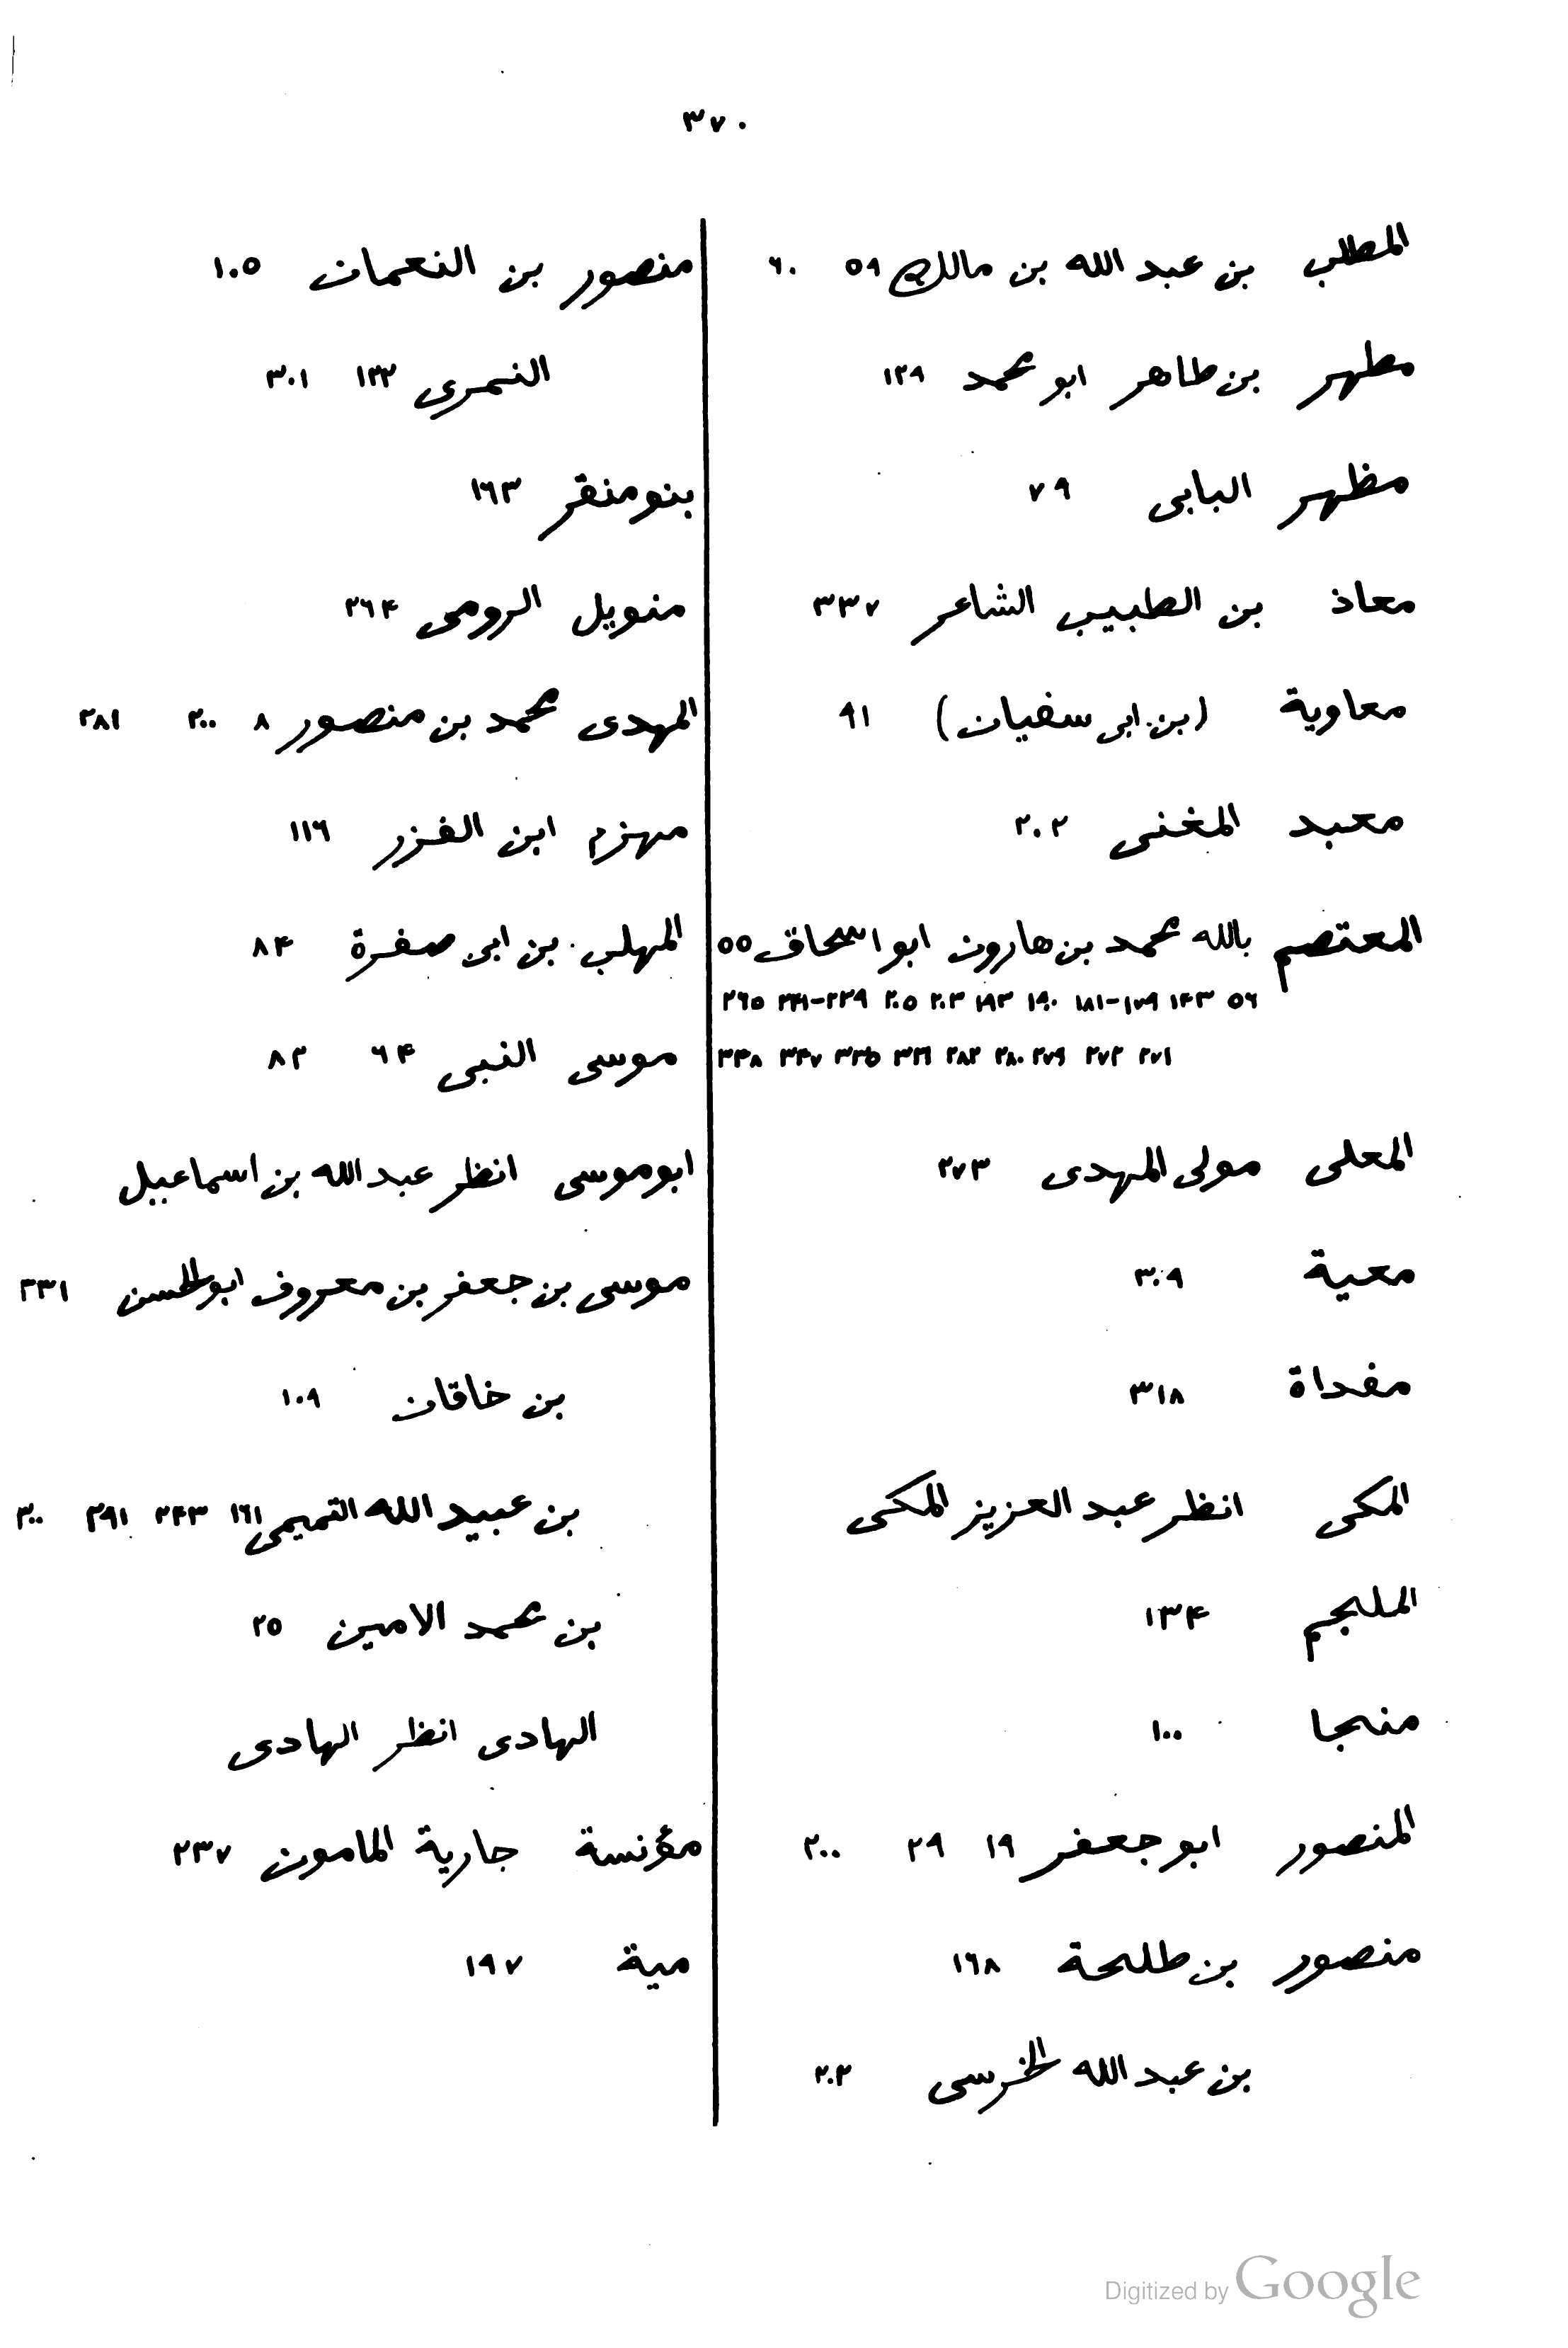 ٣٧٠
المطلب بن عبد الله بن مالك ٥٩ ٦٠
مطهر بن طاهر ابو محمد ١٣٩
مظهر البابى ٧٩
معاذ بن الطبيب الشاعر ٣٣٧
معاوية (بن ابى سفيان) ٩١
معبد المغنى ٢٠٢
المعتصم بالله محمد بن هارون ابو اسحاق ٥٥
٥٦ ١٤٣ ١٧٩-١٨١ ١٩٠ ١٩٣ ٢٠٣ ٢٠٥ ٢٣٩-٢٤١ ٢٦٥
٢٧١ ٢٧٢ ٢٧٩ ٢٨٠ ٢٨٢ ٣٢٦ ٣٣٥ ٣٤٧ ٣٤٨
المعلى مولى المهدى ٢٧٣
معية ٣٠٩
مفداة ٣١٨
المكى انظر عبد العزيز المكى
الملبجم ١٣٤
منجا ١٠٠
المنصور ابو جعفر ١٩ ٢٩ ٢٠٠
منصور بن طلحة ١٦٨
بن عبد الله الخرسى ٢٠٢
منصور بن النعمان ١٠٥
النمرى ١٣٣ ٣٠١
بنو منقر ١٦٣
منويل الرومى ٢٦٤
المهدى محمد بن منصور ٨ ٢٠٠ ٢٨١
مهزم ابن الفزر ١١٦
المهلب بن ابى صفرة ٨٤
موسى النبى ٦٤ ٨٢
ابو موسى انظر عبد الله بن اسماعيل
موسى بن جعفر بن معروف ابو الحسن ٣٣١
بن خاقان ١٠٩
بن عبيد الله التميمى ١٦١ ٢٤٣ ٢٩١ ٣٠٠
بن محمد الامين ٢٥
الهادى انظر الهادى
مؤنسة جارية المامون ٢٣٧
مية ١٩٧
Digitized by Google